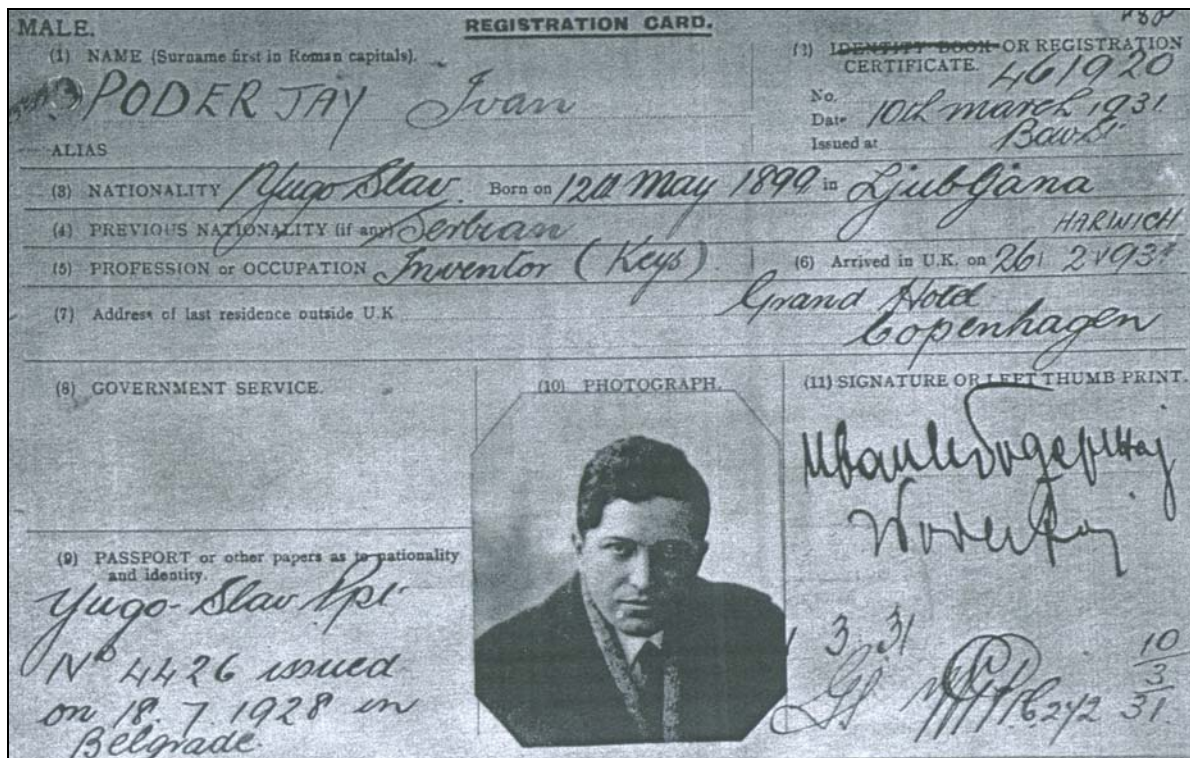 MALE.
REGISTRATION CARD.
(1) NAME (Surname first in Roman capitals).
PODERJAY Ivan
ALIAS
(2) IDENTITY BOOK OR REGISTRATION
CERTIFICATE.
No. 461920
Date 10th march 1931.
Issued at Bow St.
(3) NATIONALITY Yugo Slav. Born on 12th May 1899 in Ljubljana
(4) PREVIOUS NATIONALITY (if any) Serbian
HARWICH
(5) PROFESSION or OCCUPATION Inventor (Keys)
(6) Arrived in U.K. on 26/2/1931
(7) Address of last residence outside U.K
Grand Hotel
Copenhagen
(8) GOVERNMENT SERVICE.
(9) PASSPORT or other papers as to nationality
and identity.
Yugo-Slav Ppt
No 4426 issued
on 18.7.1928 in
Belgrade.
(10) PHOTOGRAPH.
(11) SIGNATURE OR LEFT THUMB PRINT.
3.31
10
3
31.